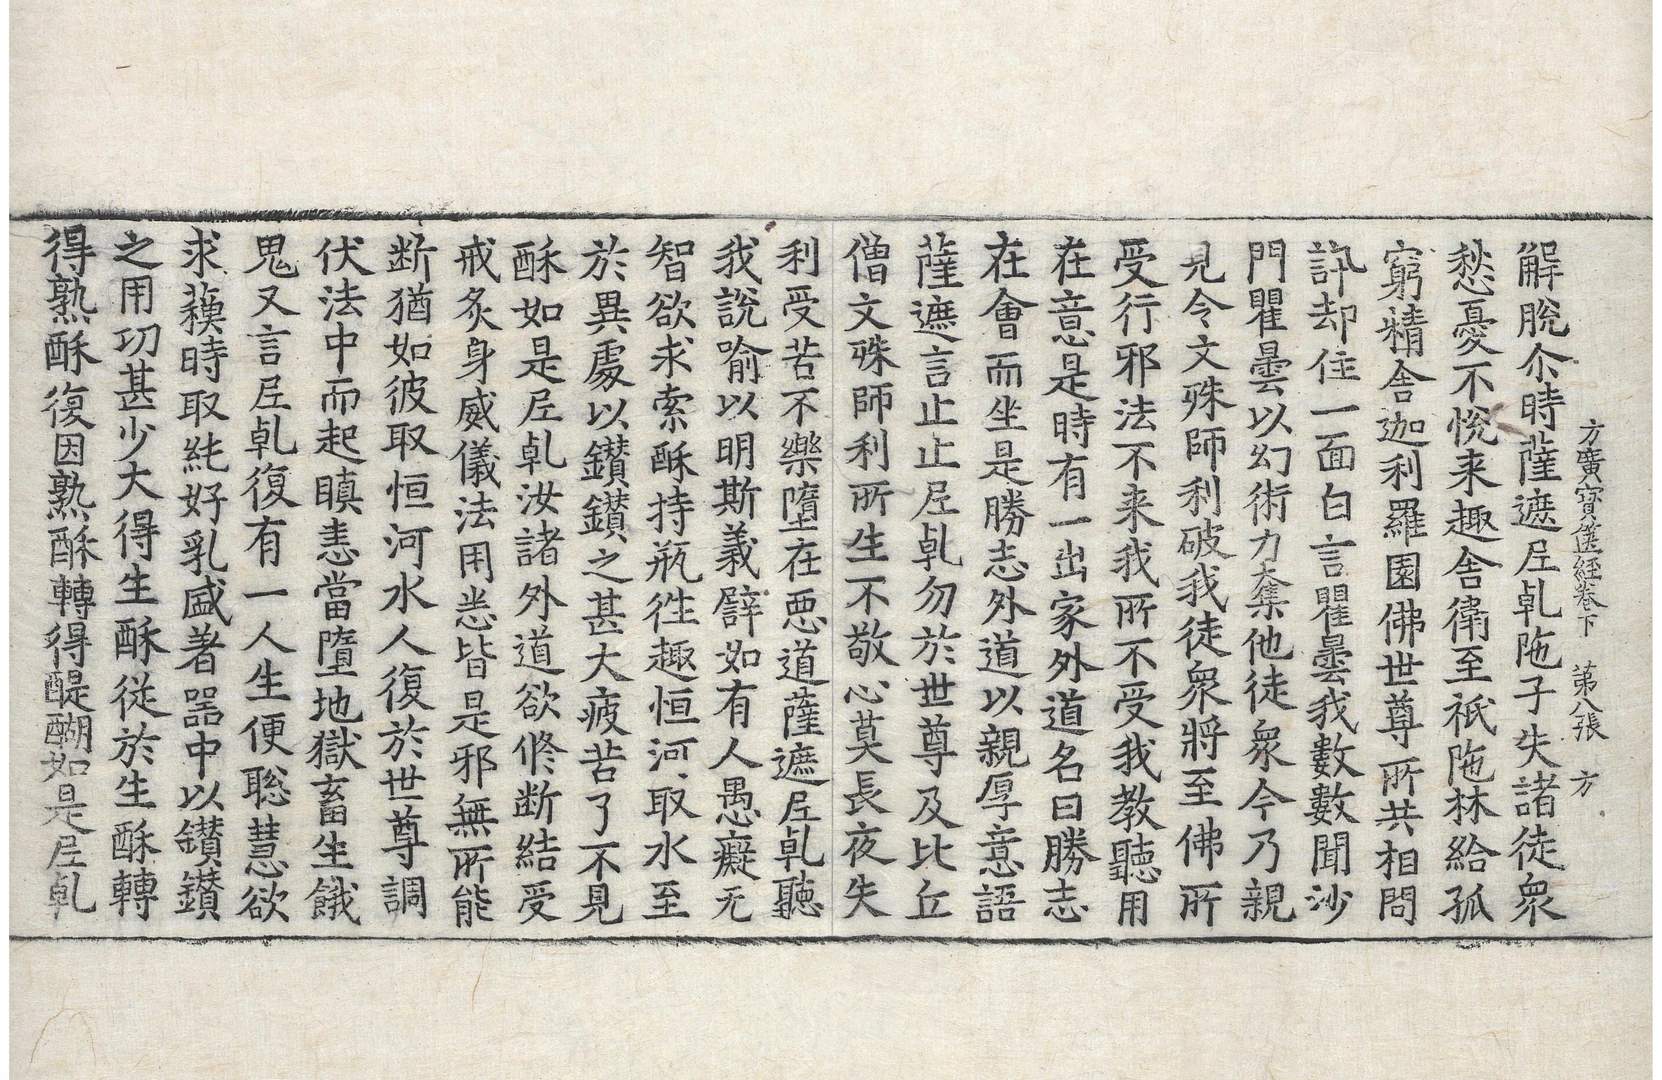 方廣寶篋經卷下 第八張 方
解脫尒時薩遮𡰱乹陁子失諸徒衆
愁憂不悅来趣舍衛至祇陁林給孤
窮精舍迦利羅園佛世尊所共相問
訊却住一面白言瞿曇我數數聞沙
門瞿曇以幻術力奪他徒衆今乃親
見今文殊師利破我徒衆將至佛所
受行邪法不来我所不受我教聽用
在意是時有一出家外道名曰勝志
在會而坐是勝志外道以親厚意語
薩遮言止止𡰱乹勿於世尊及比丘
僧文殊師利所生不敬心莫長夜失
利受苦不樂墮在惡道薩遮𡰱乹聽
我說喻以明斯義譬如有人愚癡无
智欲求索酥持瓶徃趣恒河取水至
於異處以鑽鑽之甚大疲苦了不見
酥如是𡰱乹汝諸外道欲修断結受
戒炙身威儀法用恙皆是邪無所能
断猶如彼取恒河水人復於世尊調
伏法中而起瞋恚當墮地獄畜生餓
鬼又言𡰱乹復有一人生便聡慧欲
求蘓時取純好乳盛著器中以鑽鑽
之用功甚少大得生酥從於生酥轉
得熟酥復因熟酥轉得醍醐如是𡰱乹